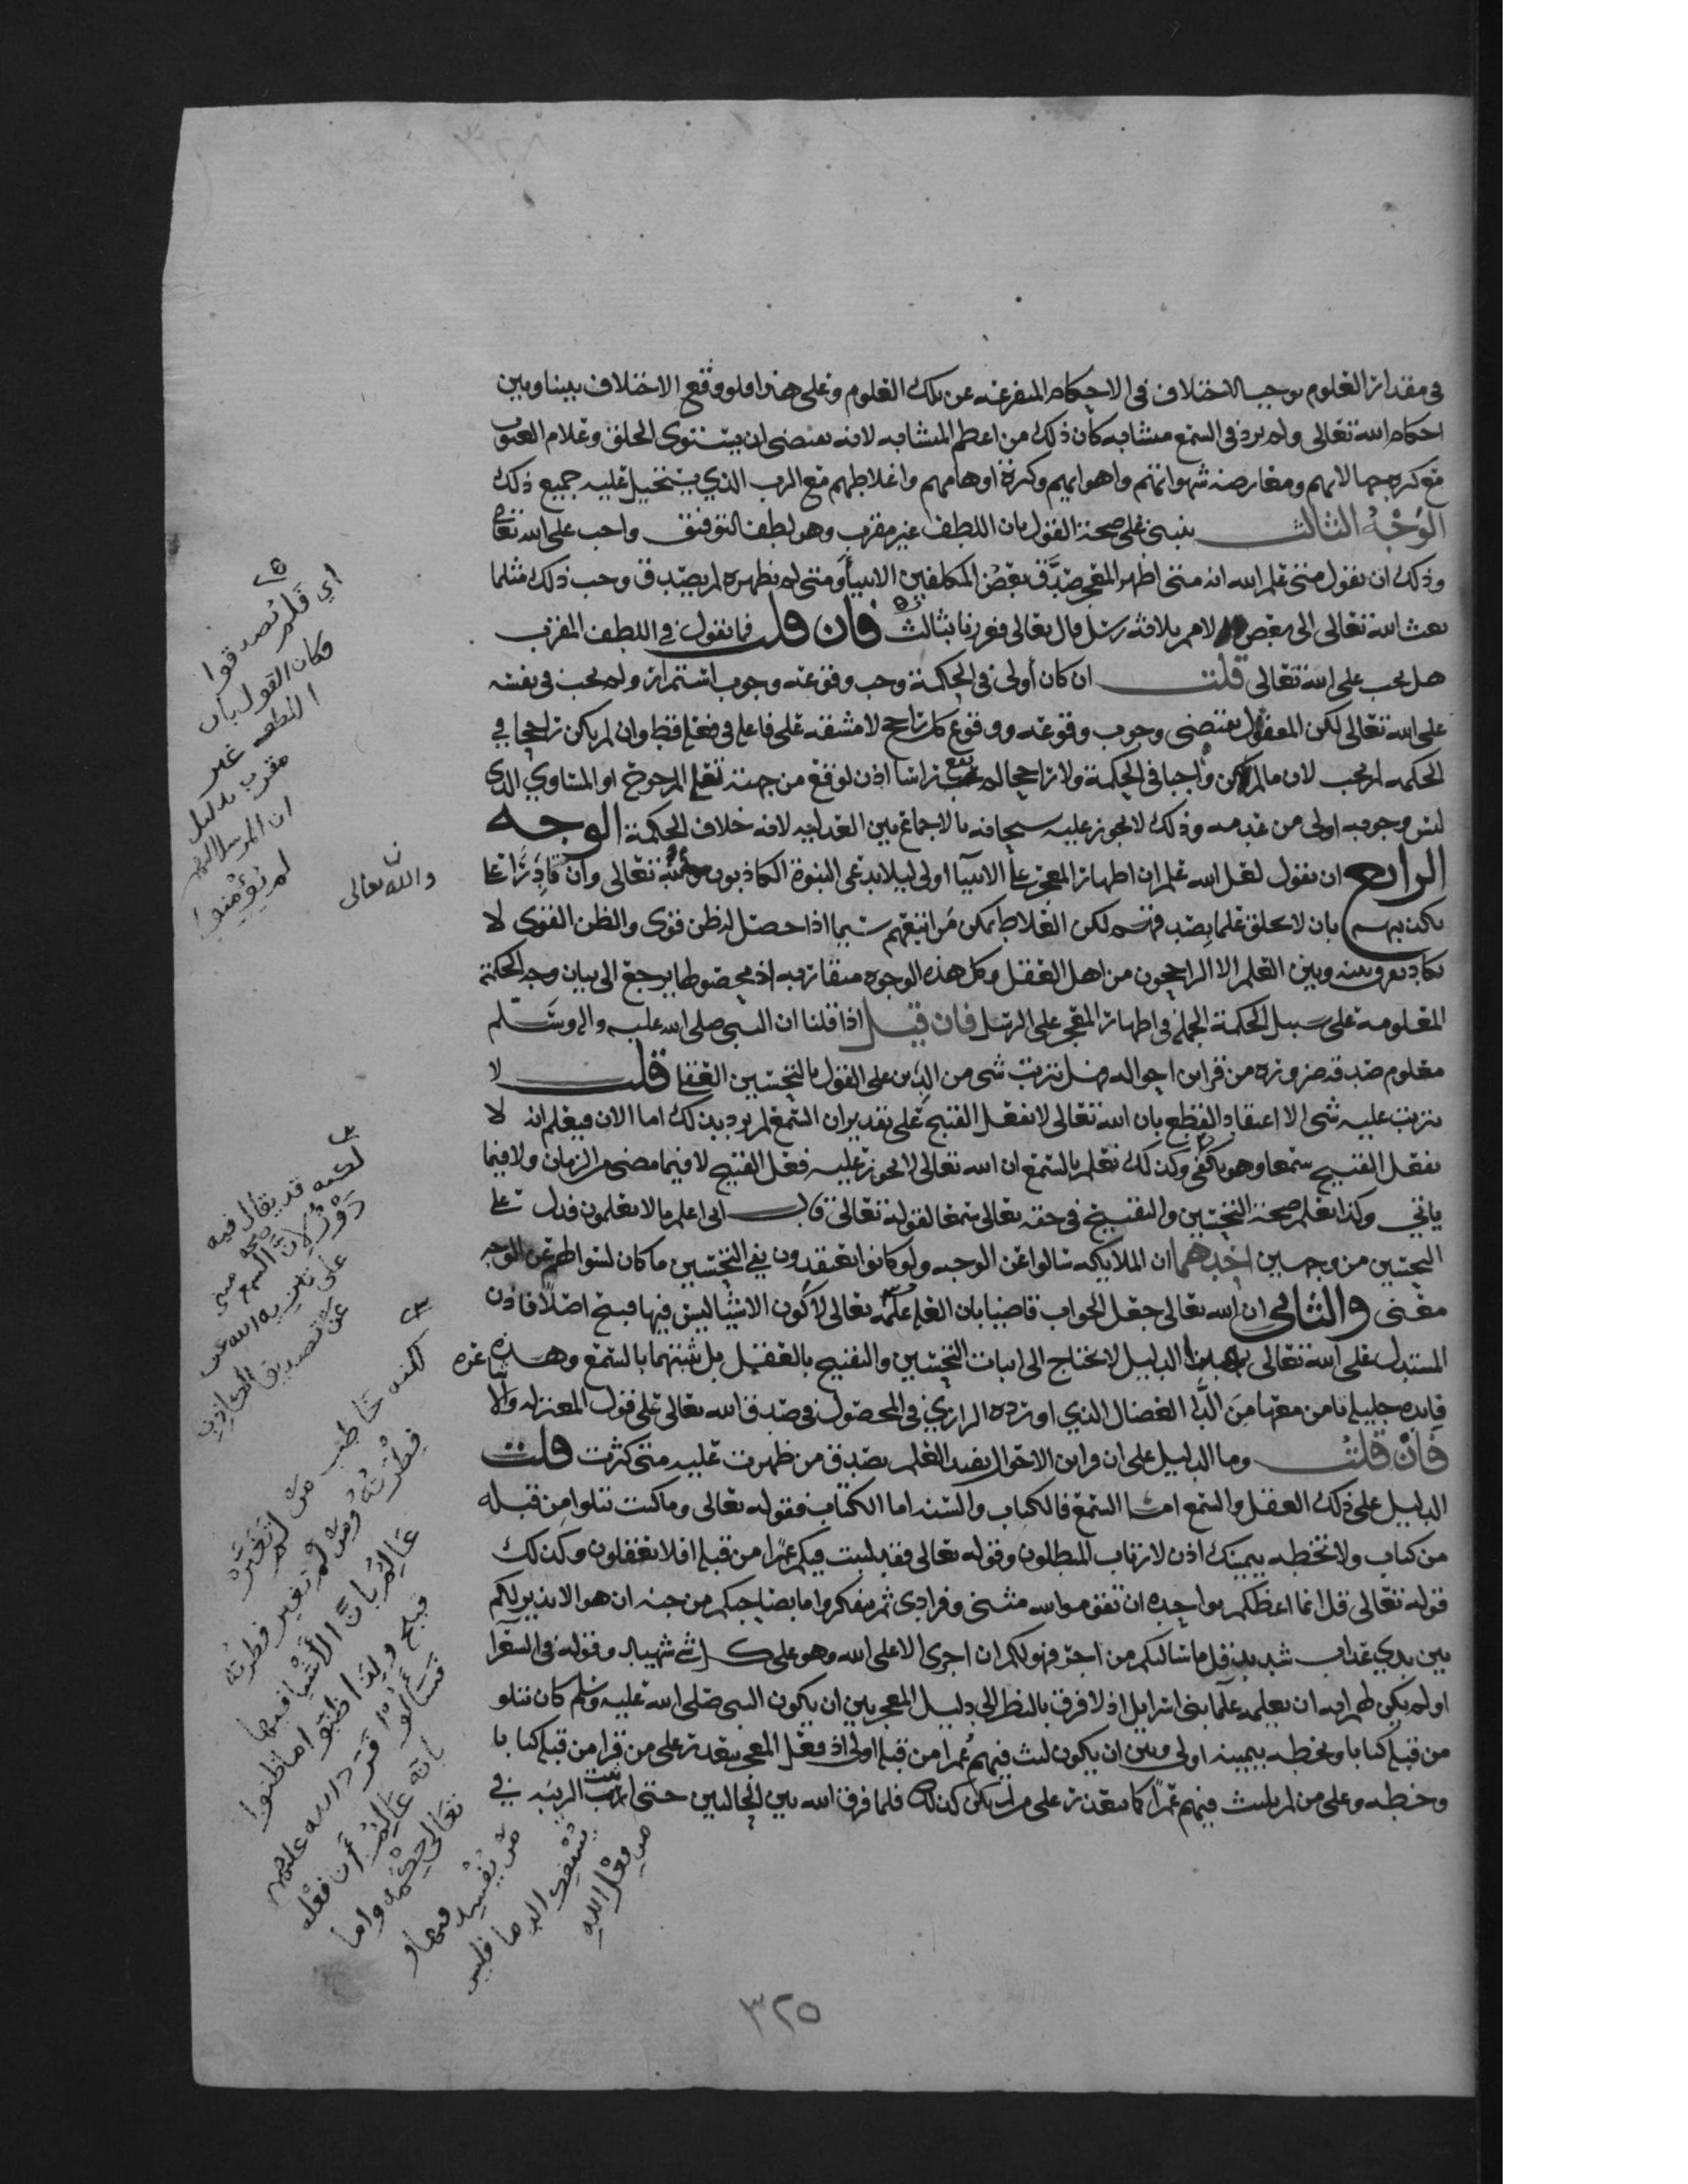 في مقدار العلوم يوجب الاختلاف في الاحكام المتفرعه عن تلك العلوم وعلى هذا فلو وقع الاختلاف بيننا وبين
احكام الله تعالى ولم يرد في السمع متشابه كان ذلك من اعظم المتشابه لانه يقتضي ان يستوي الخلق وعلام الغيوب
مع كثرة جهالاتهم ومعارضة شهواتهم واهوائهم وكثرة اوهامهم واغلاطهم مع الرب الذي يستحيل عليه جميع ذلك
الوجه الثالث ينبني على صحة القول بان اللطف غير مقرب وهو لطف التوفيق واجب على الله تعالى
وذلك ان نقول متى علم الله انه متى اظهر المعجز صدق بعض المكلفين الانبيا ومتى لم يظهره لم يصدق وجب ذلك مثلما
بعث الله تعالى الى بعض الامم ثلاثة رسل قال تعالى فعززنا بثالث فان قلت فما تقول في اللطف المقرب
هل يجب على الله تعالى قلت ان كان أولى في الحكمة وجب وقوعه وجوب استمرار ولم يجب في نفسه
على الله تعالى لكن المعقول يقتضي وجوب وقوعه ووقوع كل راجح لا مشقه على فاعله في فعله قط وان لم يكن راجحا في
الحكمه لم يجب لان ما لم يكن واجبا في الحكمة ولا راجحا لم يقع راسا اذ لو وقع من جهته تعالى المرجوح او المتساوي الذي
ليس وجوبه اولى من عدمه وذلك لا يجوز عليه سبحانه بالاجماع بين العدليه لانه خلاف الحكمة الوجه
الرابع ان نقول لعل الله علم ان اظهار المعجز على الانبيا اولى ليلا يدعي النبوة الكاذبون وهو تعالى وان كان قادرا على
تكذيبهم بان لا يخلق علما بصدقهم لكن الغلاط يمكن من اتبعهم سيما اذا حصل له ظن قوي والظن القوي لا
يكاد يفرق بينه وبين العلم الا الراجحون من اهل العقل وكل هذه الوجوه متقاربه اذ محصولها يرجع الى بيان وجه الحكمة
المعلومة على سبيل الحكمة الجمله في اظهار المعجز على الرسل فان قيل اذا قلنا ان النبي صلى الله عليه واله وسلم
معلوم صدقه ضرورة من قراين احواله فهل يترتب شي من الدين على القول بالتحسين العقلي قلت لا
يترتب عليه شي الا اعتقاد القطع بان الله تعالى لا يفعل القبيح على تقدير ان السمع لم يرد بذلك اما الان فيعلم انه لا
يفعل القبيح سمعا وهو يكفي وكذلك نعلم بالسمع ان الله تعالى لا يجوز عليه فعل القبيح لا فيما مضى من الزمان ولا فيما
ياتي وكذا نعلم صحة التحسين والتقبيح في حقه تعالى سمعا لقوله تعالى قال اني اعلم ما لا تعلمون فدل على
التحسين من وجهين احدهما ان الملايكه سالوا عن الوجه ولو كانوا يعتقدون نفي التحسين ما كان لسوالهم عن الوجه
معنى والثاني ان الله تعالى جعل الجواب قاضيا بان العله علمه تعالى لا كون الاشيا ليس فيها قبيح اصلا فاذن
المستدل على الله تعالى بهذا الدليل لا يحتاج الى اثبات التحسين والتقبيح بالعقل بل نثبتهما بالسمع وهذه
فايده جليله نامن معها من الدا العضال الذي اورده الرازي في المحصول في صدق الله تعالى على قول المعتزله والاشاعره
فان قلت وما الدليل على ان قراين الاحوال تفيد العلم بصدق من ظهرت عليه متى كثرت قلت
الدليل على ذلك العقل والسمع اما السمع فالكتاب والسنه اما الكتاب فقوله تعالى وما كنت تتلوا من قبله
من كتاب ولا تخطه بيمينك اذن لارتاب المبطلون وقوله تعالى فقد لبثت فيكم عمرا من قبله افلا تعقلون وكذلك
قوله تعالى قل انما اعظكم بواحده ان تقوموا لله مثنى وفرادى ثم تتفكروا ما بصاحبكم من جنه ان هو الا نذير لكم
بين يدي عذاب شديد قل ما سالتكم من اجر فهو لكم ان اجري الا على الله وهو على كل شي شهيد وقوله في الشعرا
اولم يكن لهم ايه ان يعلمه علما بني اسرايل اذ لا فرق بالنظر الى دليل المعجز بين ان يكون النبي صلى الله عليه وسلم كان يتلو
من قبله كتابا ويخطه بيمينه اولى وبين ان يكون لبث فيهم عمرا من قبله اولى اذ فعل المعجز يتعذر على من قرا من قبله كتابا
وخطه وعلى من لم يلبث فيهم عمرا كما يتعذر على من لم يكن كذلك فلما فرق الله بين الحالين حتى اثبت الريبه في
اي فلم يصدقوا
فكان القول بان
اللطف غير
مقرب بدليل
ان المرسل اليهم
لم يؤمنوا
والله تعالى
لكنه قد يقال فيه
دور لان صحة السمع
مبني على تنزيه الله عن
عن تصديق الكاذبين
لكنه خاطب من لم تتغير
فطرته ومن لم تغير فطرته
عالم بان الأشيا فيها
قبيح
بانه عالم أن فعله
تعالى حكمه واما
من يفسد فيها و
يسفك الدما فليس
من فعل الله
٣٢٥